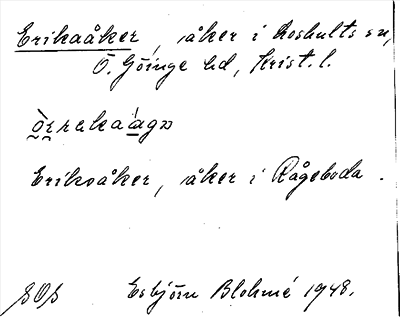 Erikaåker, åker i Loshults sn,
Ö. Göinge hd, Krist. l.
Erikoåker, åker i Rågeboda.
SOS Esbjörn Blohmé 1948.